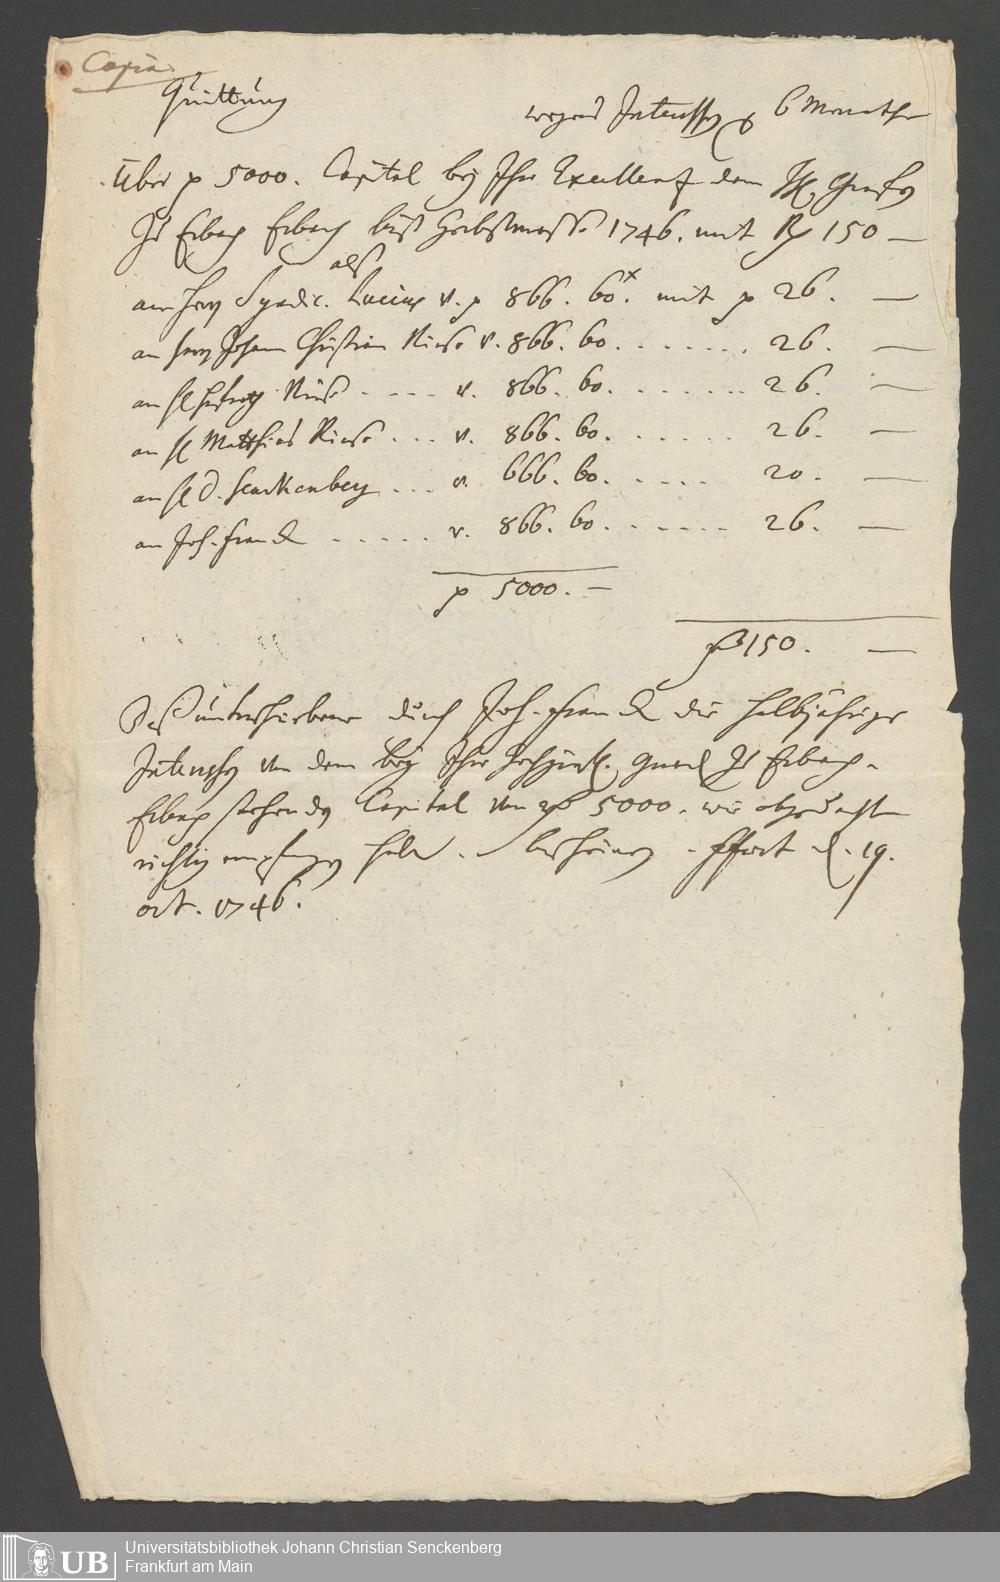 Copia
Quittung
wegen Interessen à 6 Monathe
Über f 5000. Capital bey Ihro Excellenz dem H. Grafen
zu Erbach Erbach biß Herbstmesse 1746. mit 150 —
als
an Herrn Syndic. Lucius v. f 866. 60 x. mit f 26. —
an Herrn Johann Christian Riese v. 866. 60. . . . . . . . 26. —
an H. Riese . . . . v. 866. 60. . . . . . . . 26. —
an H. Matthias Riese . . . v. 866. 60. . . . . . . 26. —
an H. D. Senckenberg . . . v. 666. 60. . . . . . 20. —
an Joh. Franck . . . . . v. 866. 60. . . . . . . 26. —
f 5000. —
f 150. —
Daß unterschriebene durch Joh. Franck die halbjährige
Interessen von dem bey Ihro Hochgräfl. Gnad. zu Erbach-
Erbach stehenden Capital von f 5000. wie obgedacht
richtig empfangen habe, bescheinen. Ffort d. 19.
oct. 1746.
UB
Universitätsbibliothek Johann Christian Senckenberg
Frankfurt am Main